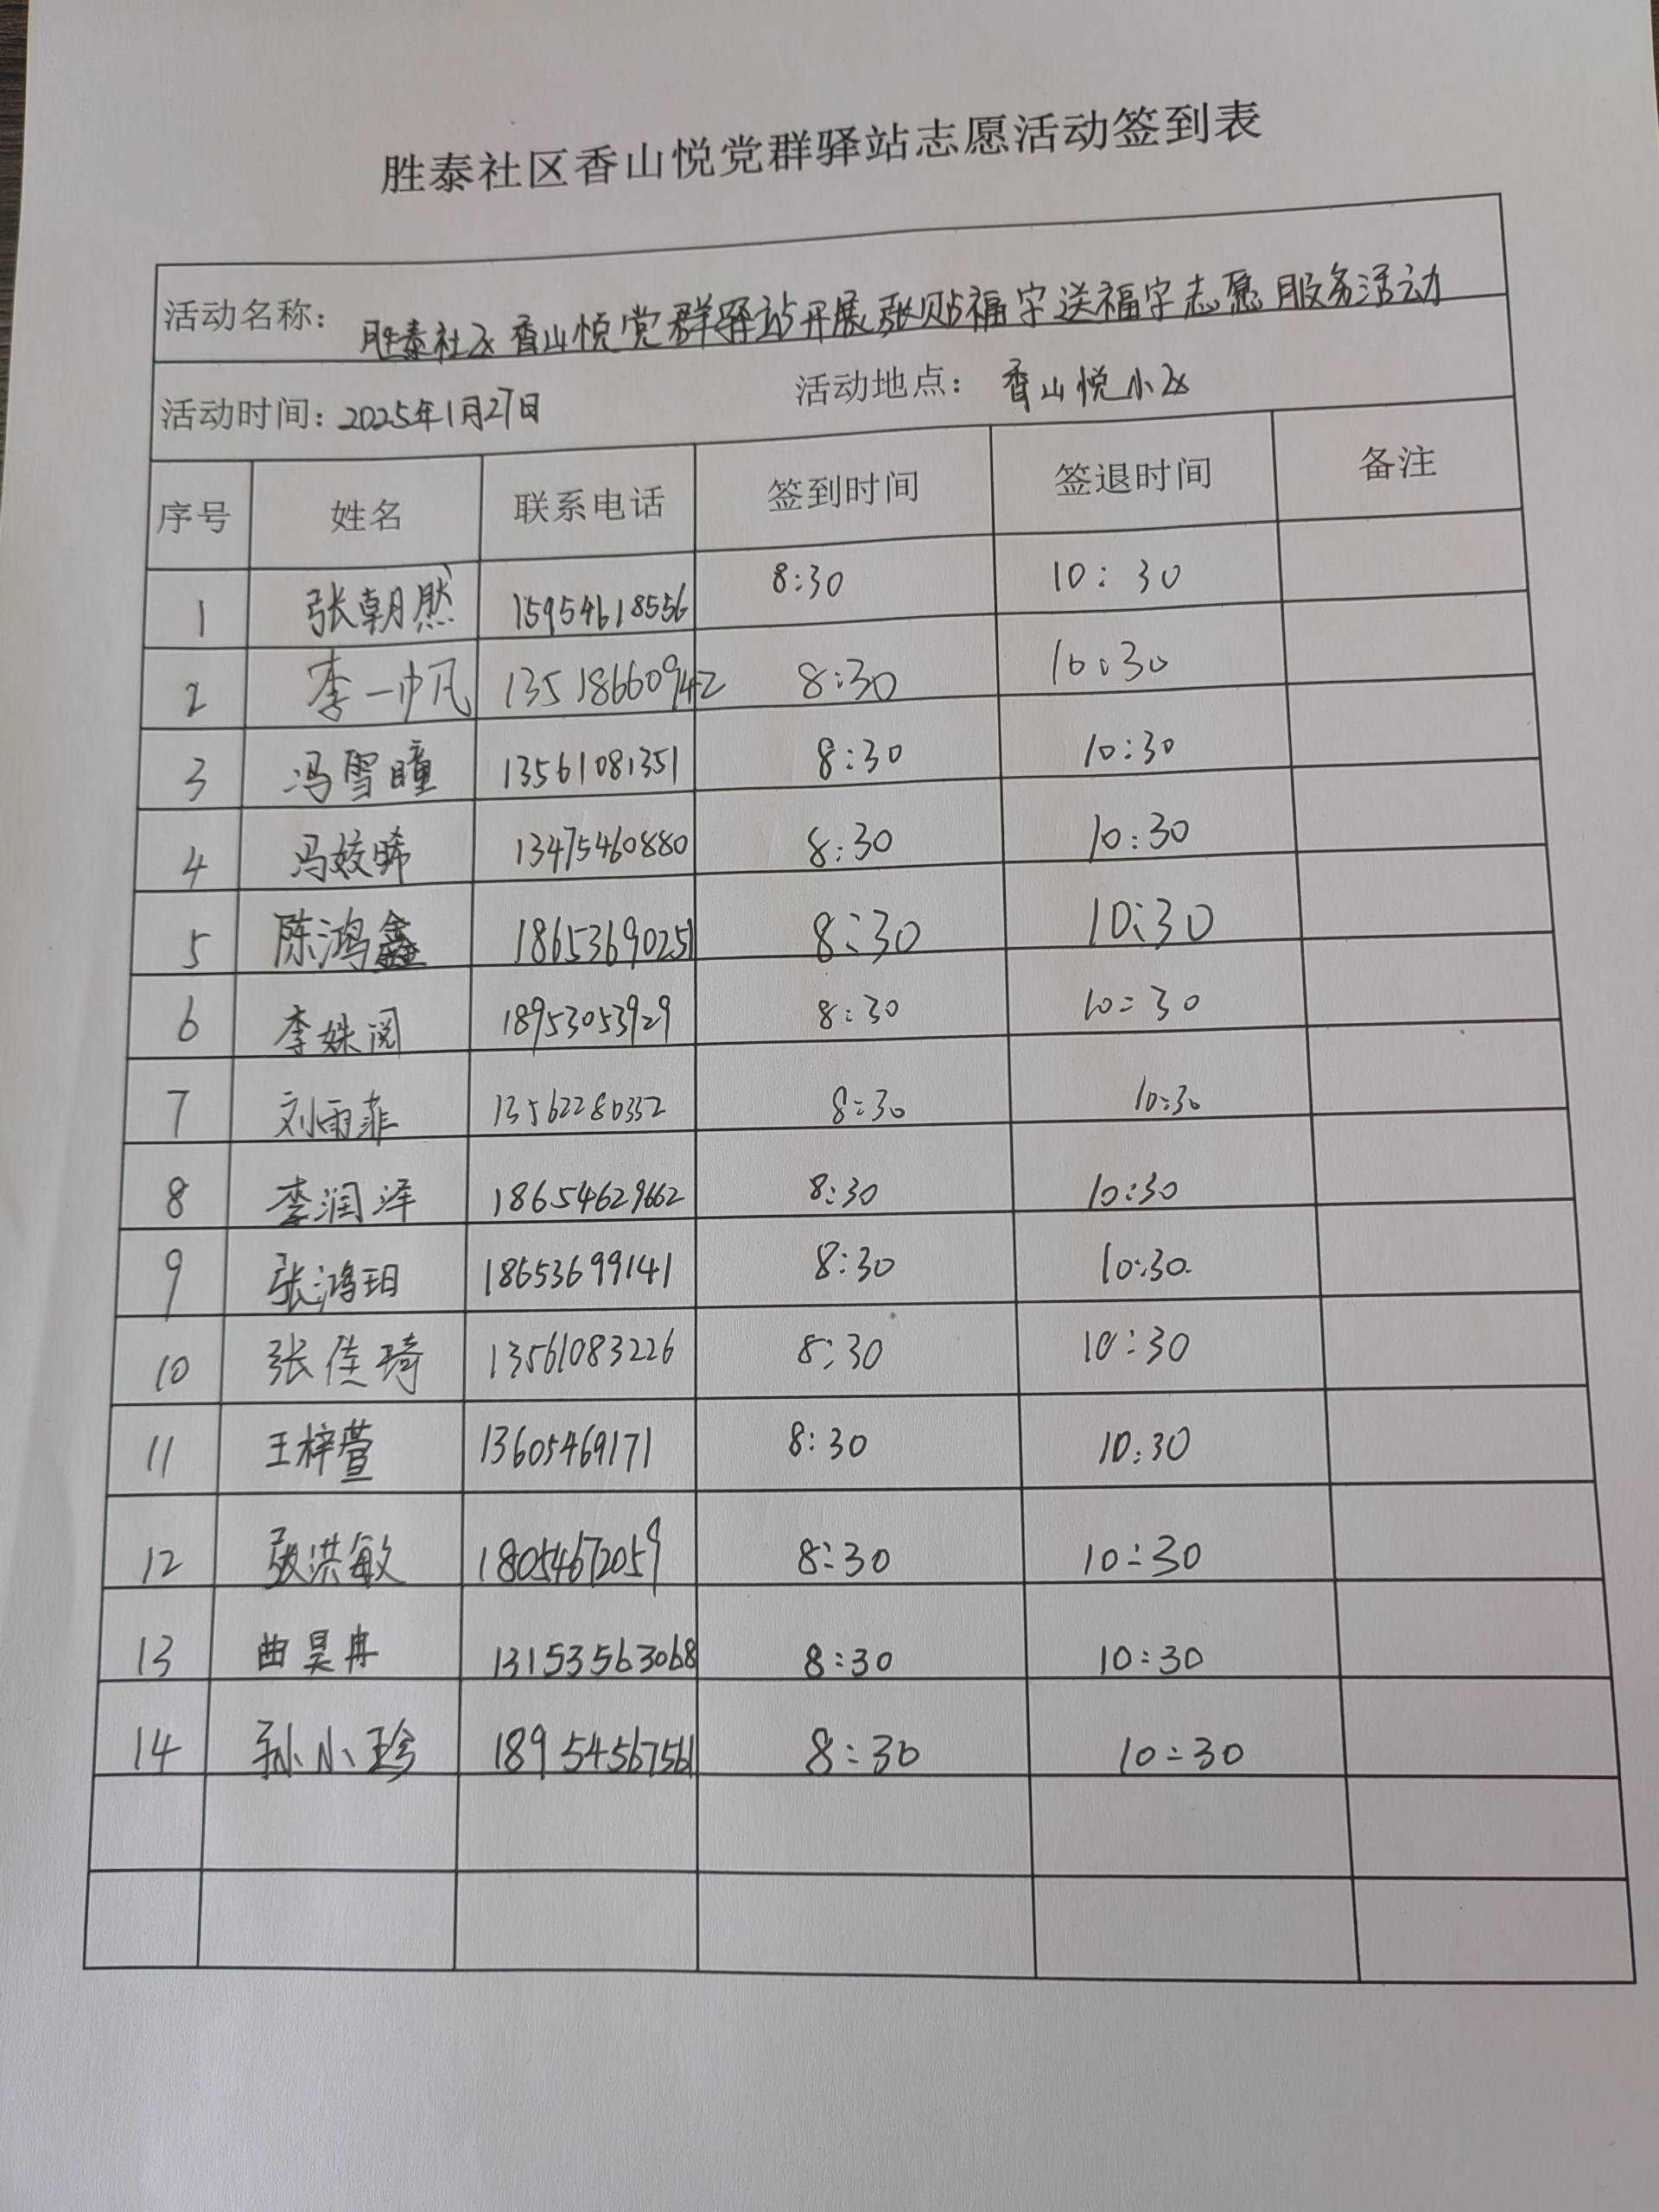 胜泰社区香山悦党群驿站志愿活动签到表
活动名称： 胜泰社区香山悦党群驿站开展张贴福字送福字志愿服务活动
活动时间：2025年1月27日 活动地点： 香山悦小区
序号 姓名 联系电话 签到时间 签退时间 备注
1 张朝然 15954618556 8:30 10:30
2 李一帆 13518660942 8:30 10:30
3 冯雪瞳 13561081351 8:30 10:30
4 冯姣晞 13475460880 8:30 10:30
5 陈鸿鑫 18653690251 8:30 10:30
6 李姝阅 18953053929 8:30 10:30
7 刘雨菲 13562280332 8:30 10:30
8 李润泽 18654629662 8:30 10:30
9 张鸿玥 18653699141 8:30 10:30
10 张佳琦 13561083226 8:30 10:30
11 王梓萱 13605469171 8:30 10:30
12 张洪敏 18054672059 8:30 10:30
13 曲昊冉 13153563068 8:30 10:30
14 孙小珍 18954567561 8:30 10:30